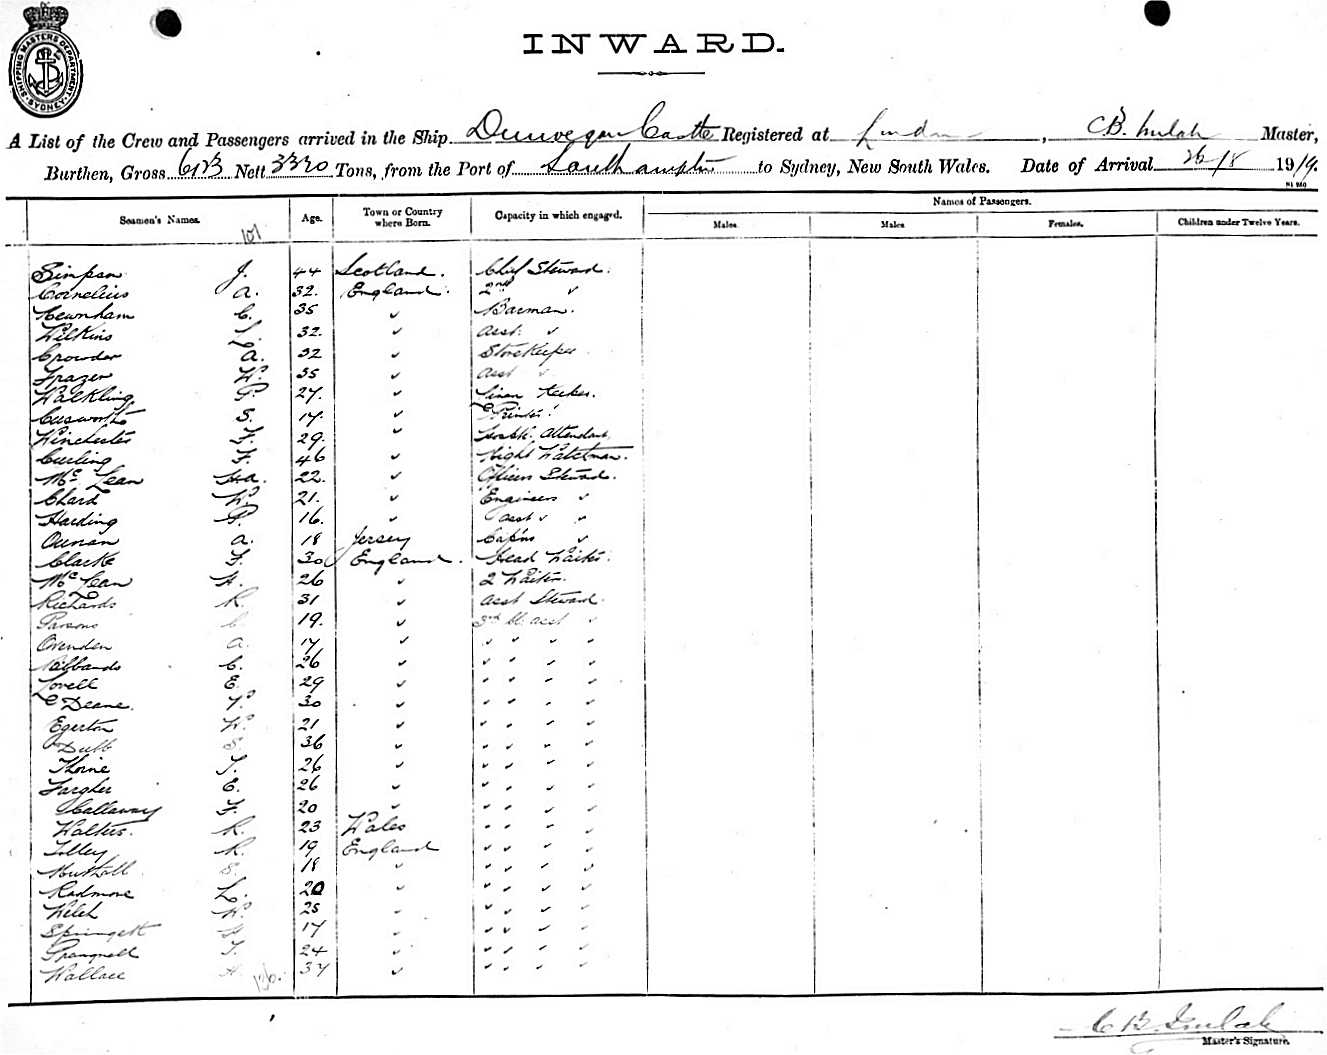 SHIPPING MASTERS DEPARTMENT SYDNEY
INWARD.
A List of the Crew and Passengers arrived in the Ship Dunvegan Castle Registered at London, C B. Master,
Burthen, Gross Nett 3320 Tons, from the Port of Southampton to Sydney, New South Wales. Date of Arrival 26/8 1919.
Seamen's Names. Age. Town or Country where Born. Capacity in which engaged. Names of Passengers.
Males Males Females. Children under Twelve Years.
101
Simpson J. 44 Scotland. Chief Steward.
Cornelius A. 32. England. 2nd "
Newnham C. 35 " Barman.
Wilkins 32. " Asst. "
Crowder A. 32 " Storekeeper
Frazer W. 35 " Asst "
Walkling P. 27. " Linen Keeper.
Cusworth S. 17. " Printer.
Winchester F. 29. " Attendant.
Curling F. 46 " Night Watchman.
McLean 22. " Officers Steward.
Chard W. 21. " Engineers "
Harding P. 16. " Asst " "
A. 18 Jersey Capns "
Clarke F. 30 England. Head Waiter.
McLean H. 26 " 2 Waiter.
Richards R. 31 " Asst Steward.
Parsons C 19. " 3rd Cl. Asst "
Ovenden A. 17 " " " " "
C. 26 " " " " "
Lovell E. 29 " " " " "
Deane. 30 " " " " "
Egerton W. 21 " " " " "
S. 36 " " " " "
Thorne T. 26 " " " " "
Fargher E. 26 " " " " "
Callaway F. 20 " " " " "
Walters. R. 23 Wales " " " "
Tilley R. 19 England " " " "
S. 18 " " " " "
Radmore L. 20 " " " " "
Welch W. 25 " " " " "
Springett 17 " " " " "
Spragnell T. 24 " " " " "
Wallace H. 37 " " " " "
136.
C B.
Master's Signature.